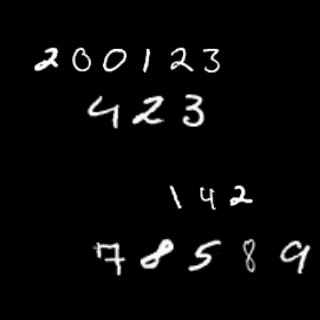 200123
423
142
78589